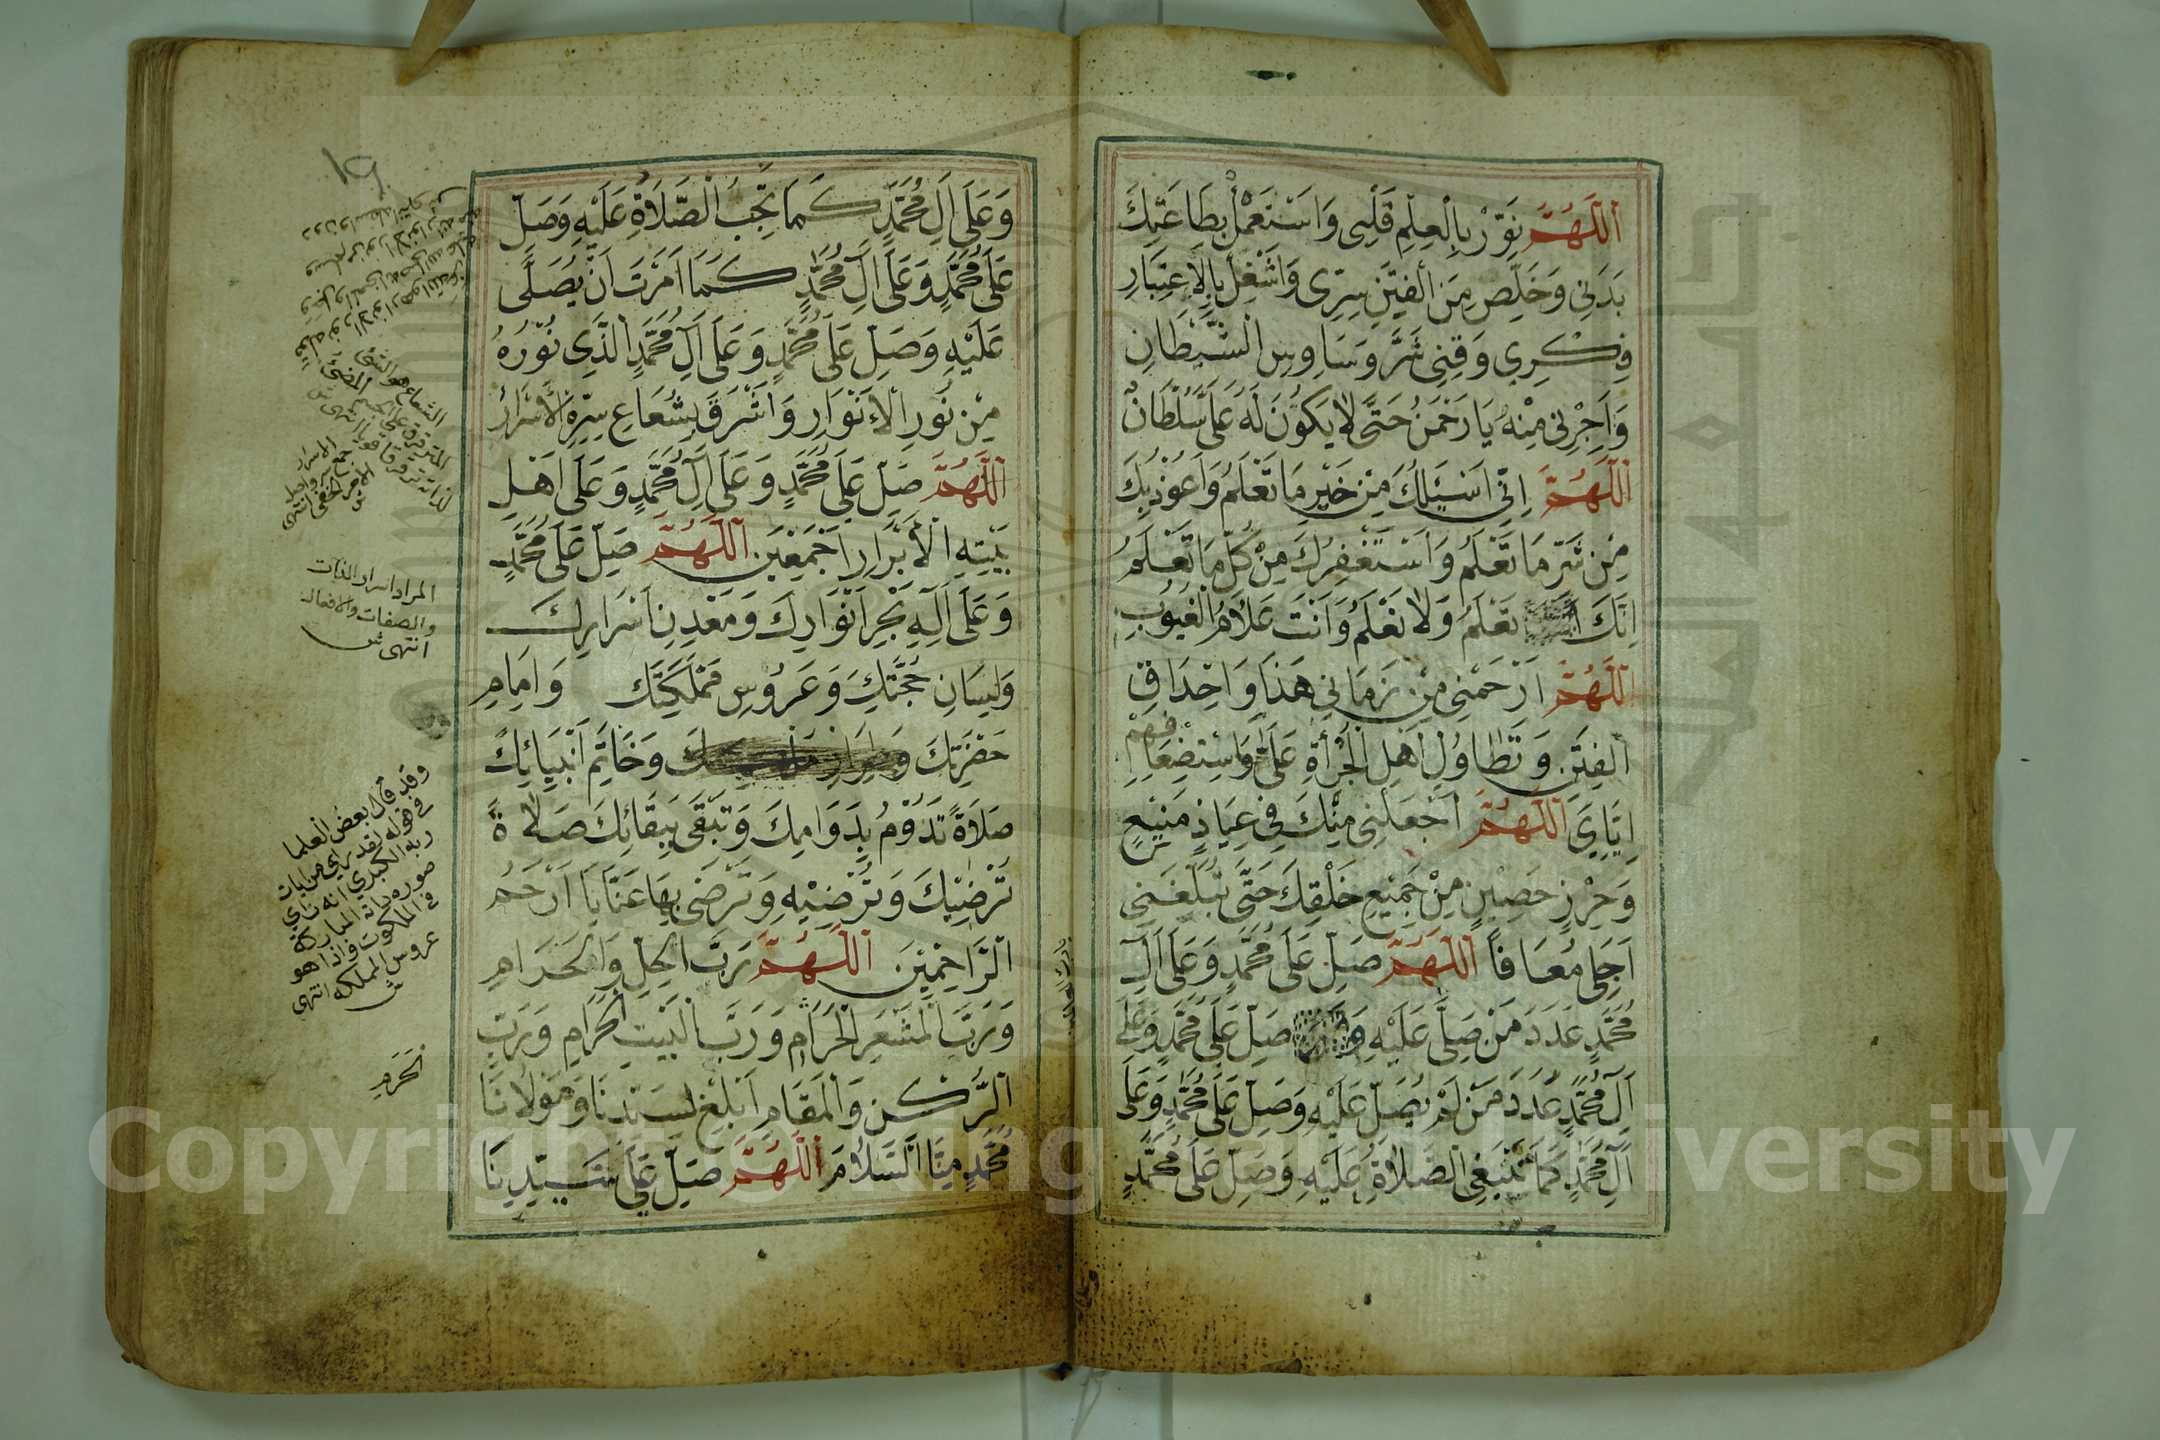 اَللّٰهُمَّ نَوِّرْ بِالْعِلْمِ قَلْبِى وَاسْتَعْمِلْ بِطَاعَتِكَ
بَدَنِى وَخَلِّصْ مِنَ الْفِتَنِ سِرِّى وَاشْغِلْ بِالْاِعْتِبَارِ
فِكْرِى وَقِنِى شَرَّ وَسَاوِسِ الشَّيْطَانِ
وَاَجِرْنِى مِنْهُ يَا رَحْمٰنُ حَتّٰى لَا يَكُوْنَ لَهُ عَلَىَّ سُلْطَانٌ
اَللّٰهُمَّ اِنِّى اَسْئَلُكَ مِنْ خَيْرِ مَا تَعْلَمُ وَاَعُوْذُ بِكَ
مِنْ شَرِّ مَا تَعْلَمُ وَاَسْتَغْفِرُكَ مِنْ كُلِّ مَا تَعْلَمُ
اِنَّكَ تَعْلَمُ وَلَا نَعْلَمُ وَاَنْتَ عَلَّامُ الْغُيُوْبِ
اَللّٰهُمَّ ارْحَمْنِى مِنْ زَمَانِى هٰذَا وَاِحْدَاقِ
الْفِتَنِ وَتَطَاوُلِ اَهْلِ الْجُرْأَةِ عَلَىَّ وَاسْتِضْعَافِهِمْ
اِيَّاىَ اَللّٰهُمَّ اجْعَلْنِى مِنْكَ فِى عِيَاذٍ مَنِيْعٍ
وَحِرْزٍ حَصِيْنٍ مِنْ جَمِيْعِ خَلْقِكَ حَتّٰى تُبَلِّغَنِى
اَجَلِى مُعَافًا اَللّٰهُمَّ صَلِّ عَلَى مُحَمَّدٍ وَعَلَى اٰلِ
مُحَمَّدٍ عَدَدَ مَنْ صَلَّى عَلَيْهِ صَلِّ عَلَى مُحَمَّدٍ وَعَلَى
اٰلِ مُحَمَّدٍ عَدَدَ مَنْ لَمْ يُصَلِّ عَلَيْهِ وَصَلِّ عَلَى مُحَمَّدٍ وَعَلَى
اٰلِ مُحَمَّدٍ كَمَا تَنْبَغِى الصَّلَاةُ عَلَيْهِ وَصَلِّ عَلَى مُحَمَّدٍ
وَعَلَى اٰلِ مُحَمَّدٍ كَمَا تَجِبُ الصَّلَاةُ عَلَيْهِ وَصَلِّ
عَلَى مُحَمَّدٍ وَعَلَى اٰلِ مُحَمَّدٍ كَمَا اَمَرْتَ اَنْ يُصَلَّى
عَلَيْهِ وَصَلِّ عَلَى مُحَمَّدٍ وَعَلَى اٰلِ مُحَمَّدٍ الَّذِى نُوْرُهُ
مِنْ نُوْرِ الْاَنْوَارِ وَاَشْرَقَ بِشُعَاعِ سِرِّهِ الْاَسْرَارُ
اَللّٰهُمَّ صَلِّ عَلَى مُحَمَّدٍ وَعَلَى اٰلِ مُحَمَّدٍ وَعَلَى اَهْلِ
بَيْتِهِ الْاَبْرَارِ اَجْمَعِيْنَ اَللّٰهُمَّ صَلِّ عَلَى مُحَمَّدٍ
وَعَلَى اٰلِهِ بَحْرِ اَنْوَارِكَ وَمَعْدِنِ اَسْرَارِكَ
وَلِسَانِ حُجَّتِكَ وَعَرُوْسِ مَمْلَكَتِكَ وَاِمَامِ
حَضْرَتِكَ وَخَاتَمِ اَنْبِيَائِكَ
صَلَاةً تَدُوْمُ بِدَوَامِكَ وَتَبْقَى بِبَقَائِكَ صَلَاةً
تُرْضِيْكَ وَتُرْضِيْهِ وَتَرْضَى بِهَا عَنَّا يَا اَرْحَمَ
الرَّاحِمِيْنَ اَللّٰهُمَّ رَبَّ الْحِلِّ وَالْحَرَامِ
وَرَبَّ الْمَشْعَرِ الْحَرَامِ وَرَبَّ الْبَيْتِ الْحَرَامِ وَرَبَّ
الرُّكْنِ وَالْمَقَامِ اَبْلِغْ لِسَيِّدِنَا وَمَوْلَانَا
مُحَمَّدٍ مِنَّا السَّلَامَ اَللّٰهُمَّ صَلِّ عَلَى سَيِّدِنَا
١٩
المراد اسرار الذات
والصفات والافعال
انتهى ش
وقد قال بعض العلما
في قوله لقد راى من ايات
ربه الكبرى انه راى
صورة ذاته المباركة
في الملكوت فاذا هو
عروس المملكة انتهى
ش
Copyright © King Saud University